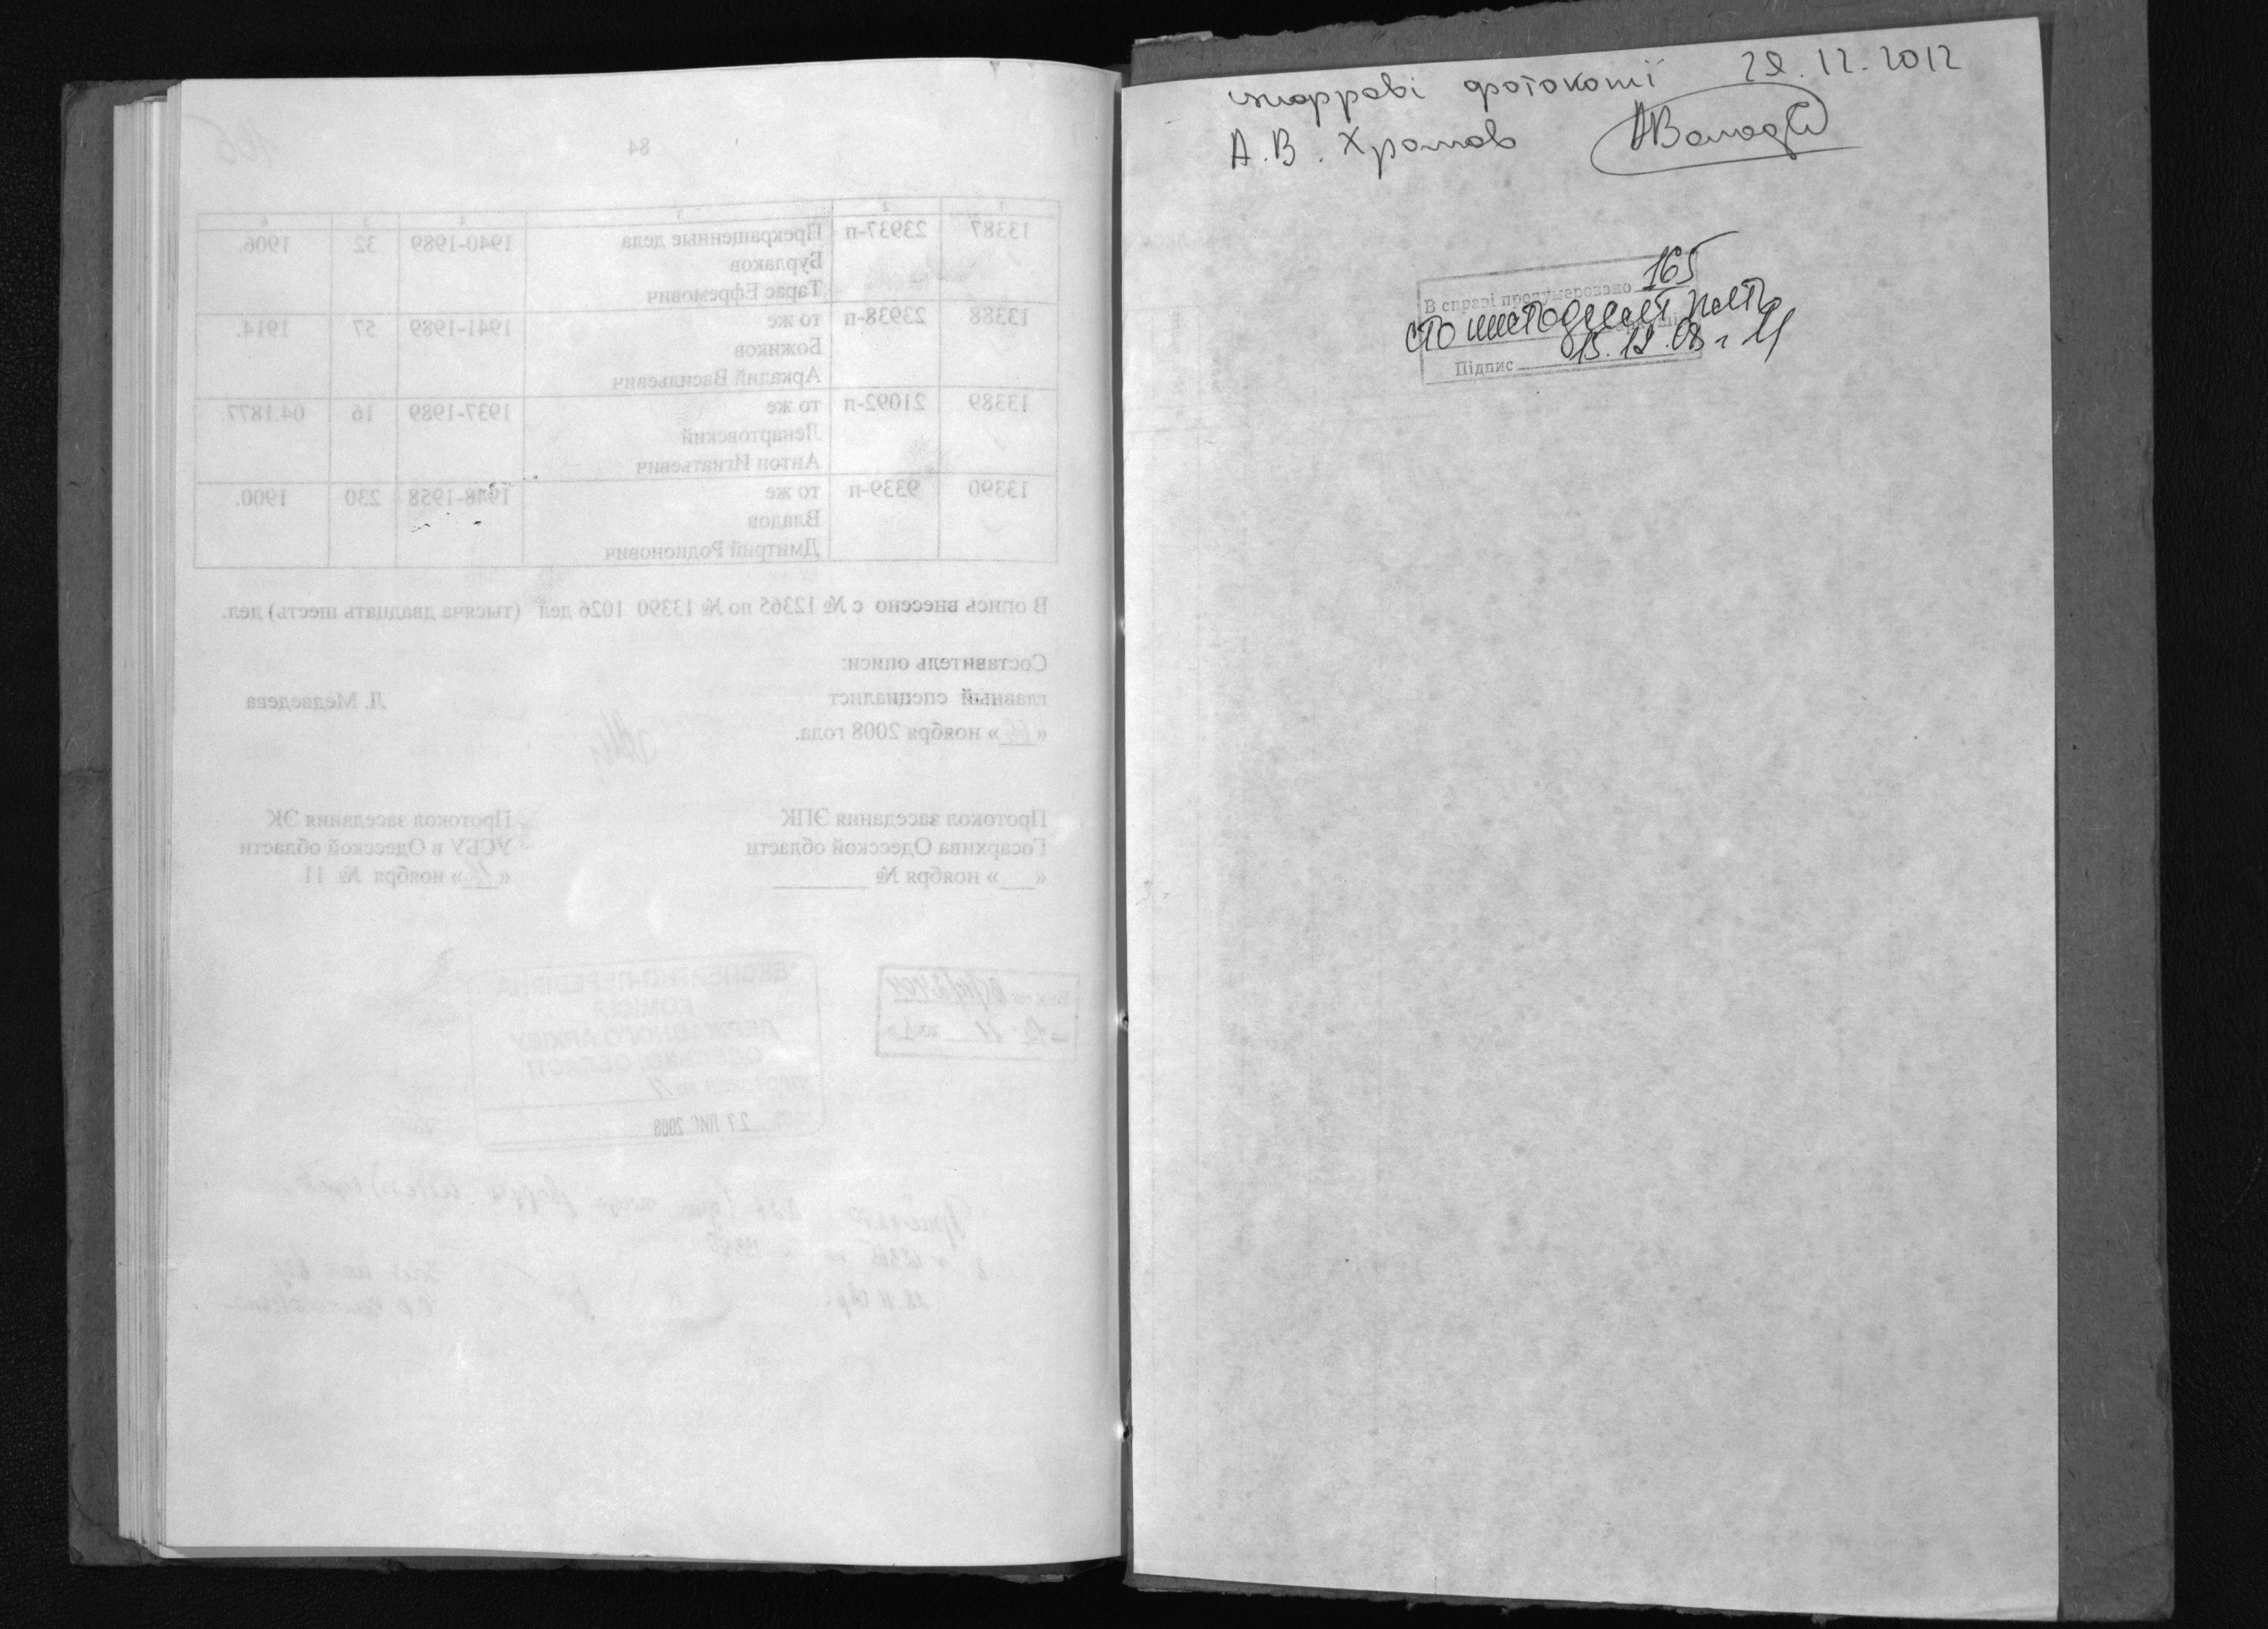 84
1 2 3 4 5 6
13387 23937-п Прекращенные дела 1940-1989 32 1906.
Бурлаков
Тарас Ефремович
13388 23938-п то же 1941-1989 57 1914.
Божиков
Аркадий Васильевич
13389 21092-п то же 1937-1989 16 04.1877.
Ленартовский
Антон Игнатьевич
13390 9339-п то же 1948-1958 230 1900.
Владов
Дмитрий Родионович
В опись внесено с № 12365 по № 13390 1026 дел (тысяча двадцать шесть) дел.
Составитель описи:
главный специалист Л. Медведева
« » ноября 2008 года.
Протокол заседания ЭПК
Госархива Одесской области
«___» ноября № ________
Протокол заседания ЭК
УСБУ в Одесской области
« » ноября № 11
ЕКСПЕРТНО-ПЕРЕВІРНА
КОМІСІЯ
ДЕРЖАВНОГО АРХІВУ
ОДЕСЬКОЇ ОБЛАСТІ
27 ЛИС 2008
цифрові фотокопії 28.12.2012
А.В. Хромов
В справі пронумеровано 165
сто шістдесят
15.12.08 г
Підпис